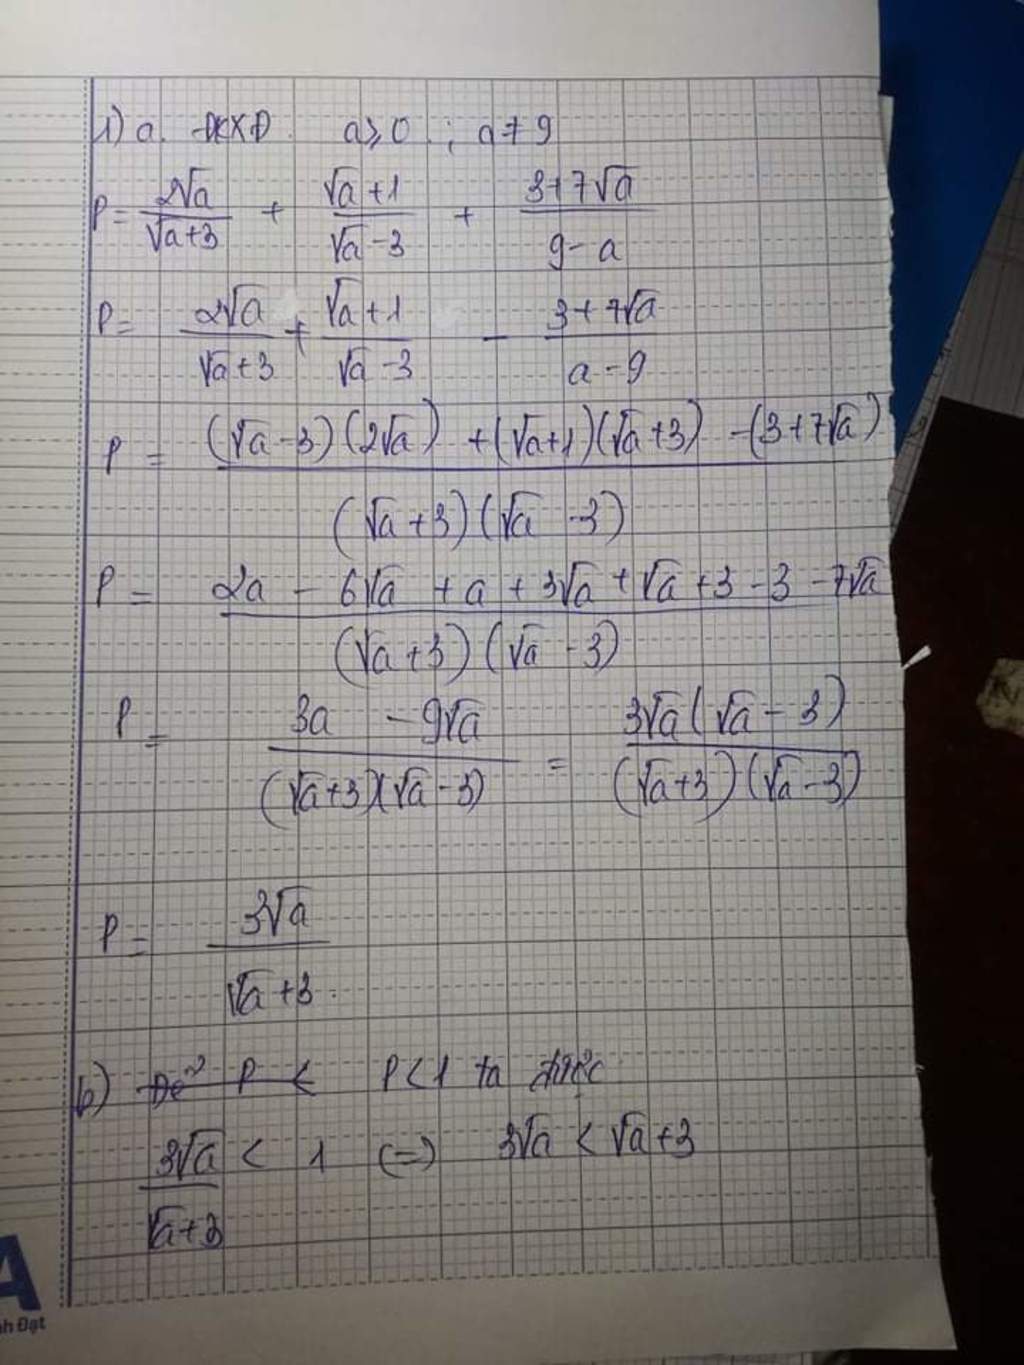 1) a. ĐKXĐ. a ≥ 0 ; a ≠ 9
P = 2√a / (√a+3) + (√a+1) / (√a-3) + (3+7√a) / (9-a)
P = 2√a / (√a+3) + (√a+1) / (√a-3) - (3+7√a) / (a-9)
P = ((√a-3)(2√a) + (√a+1)(√a+3) - (3+7√a)) / ((√a+3)(√a-3))
P = (2a - 6√a + a + 3√a + √a + 3 - 3 - 7√a) / ((√a+3)(√a-3))
P = (3a - 9√a) / ((√a+3)(√a-3)) = 3√a(√a-3) / ((√a+3)(√a-3))
P = 3√a / (√a+3).
b) Để P < P<1 ta được
3√a / (√a+3) < 1 (=) 3√a < √a+3
A
nh Đạt